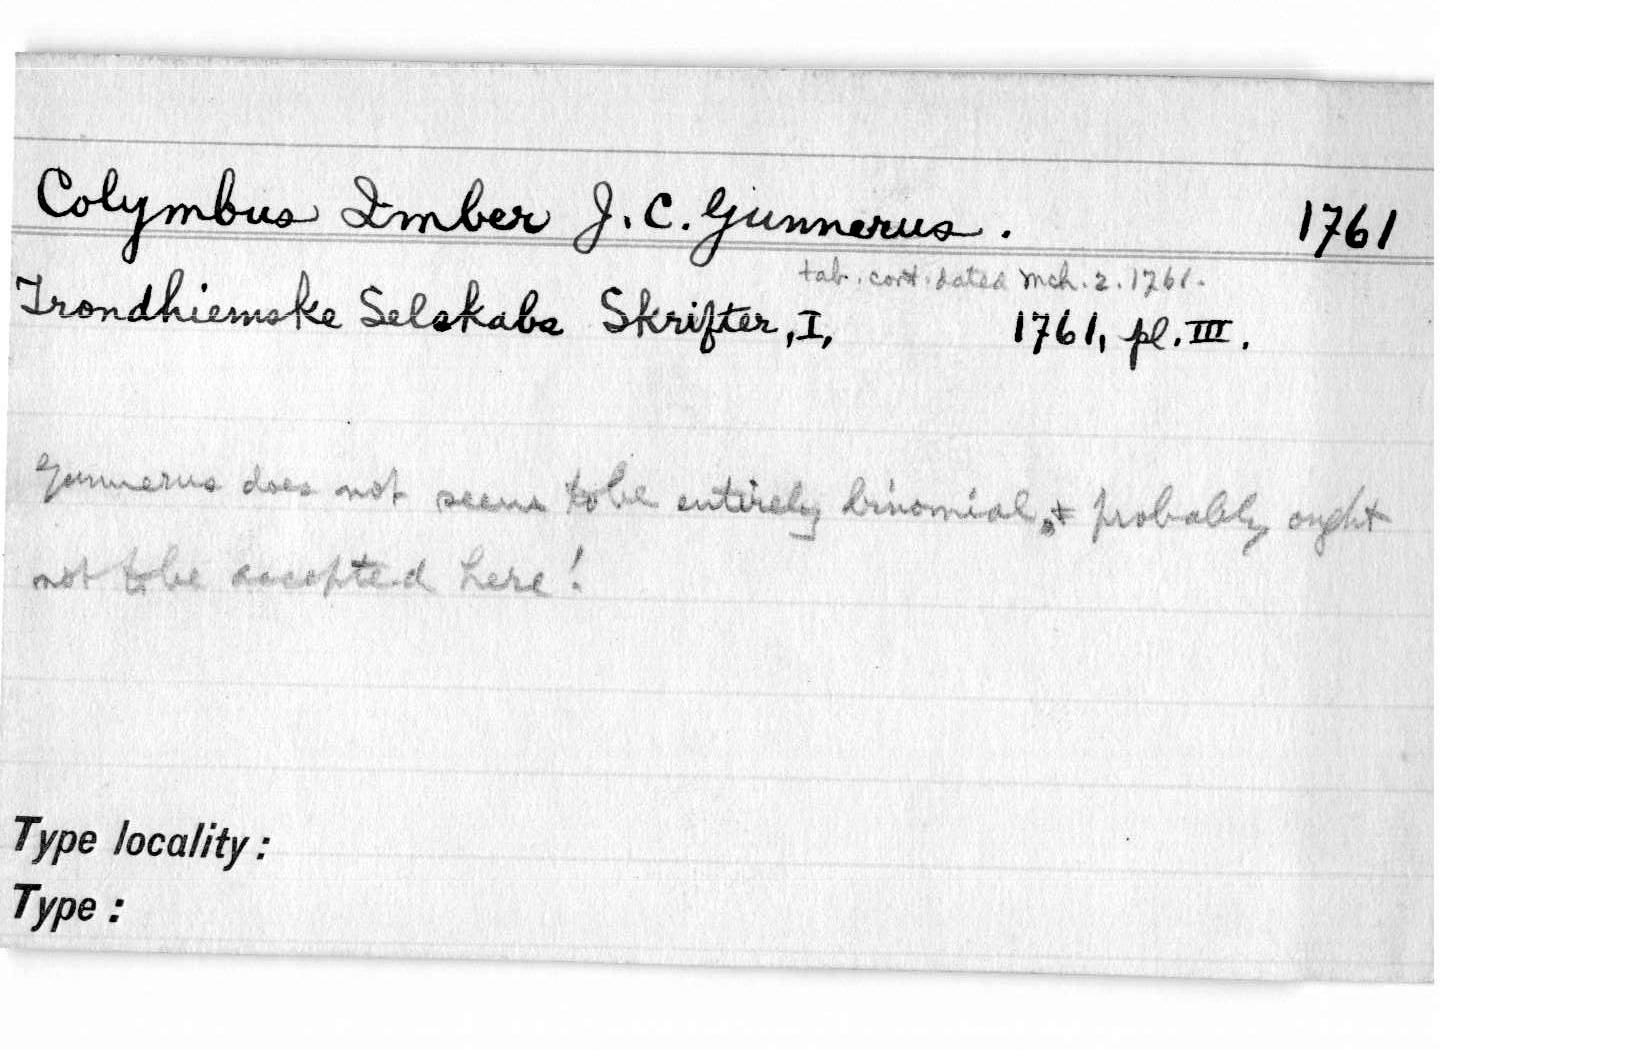 Colymbus Imber J. C. Gunnerus. 1761
tab. cont. dated Mch. 2. 1761.
Trondhiemske Selskabs Skrifter, I, 1761, pl. III.
Gunnerus does not seem to be entirely binomial, & probably ought
not to be accepted here!
Type locality:
Type: